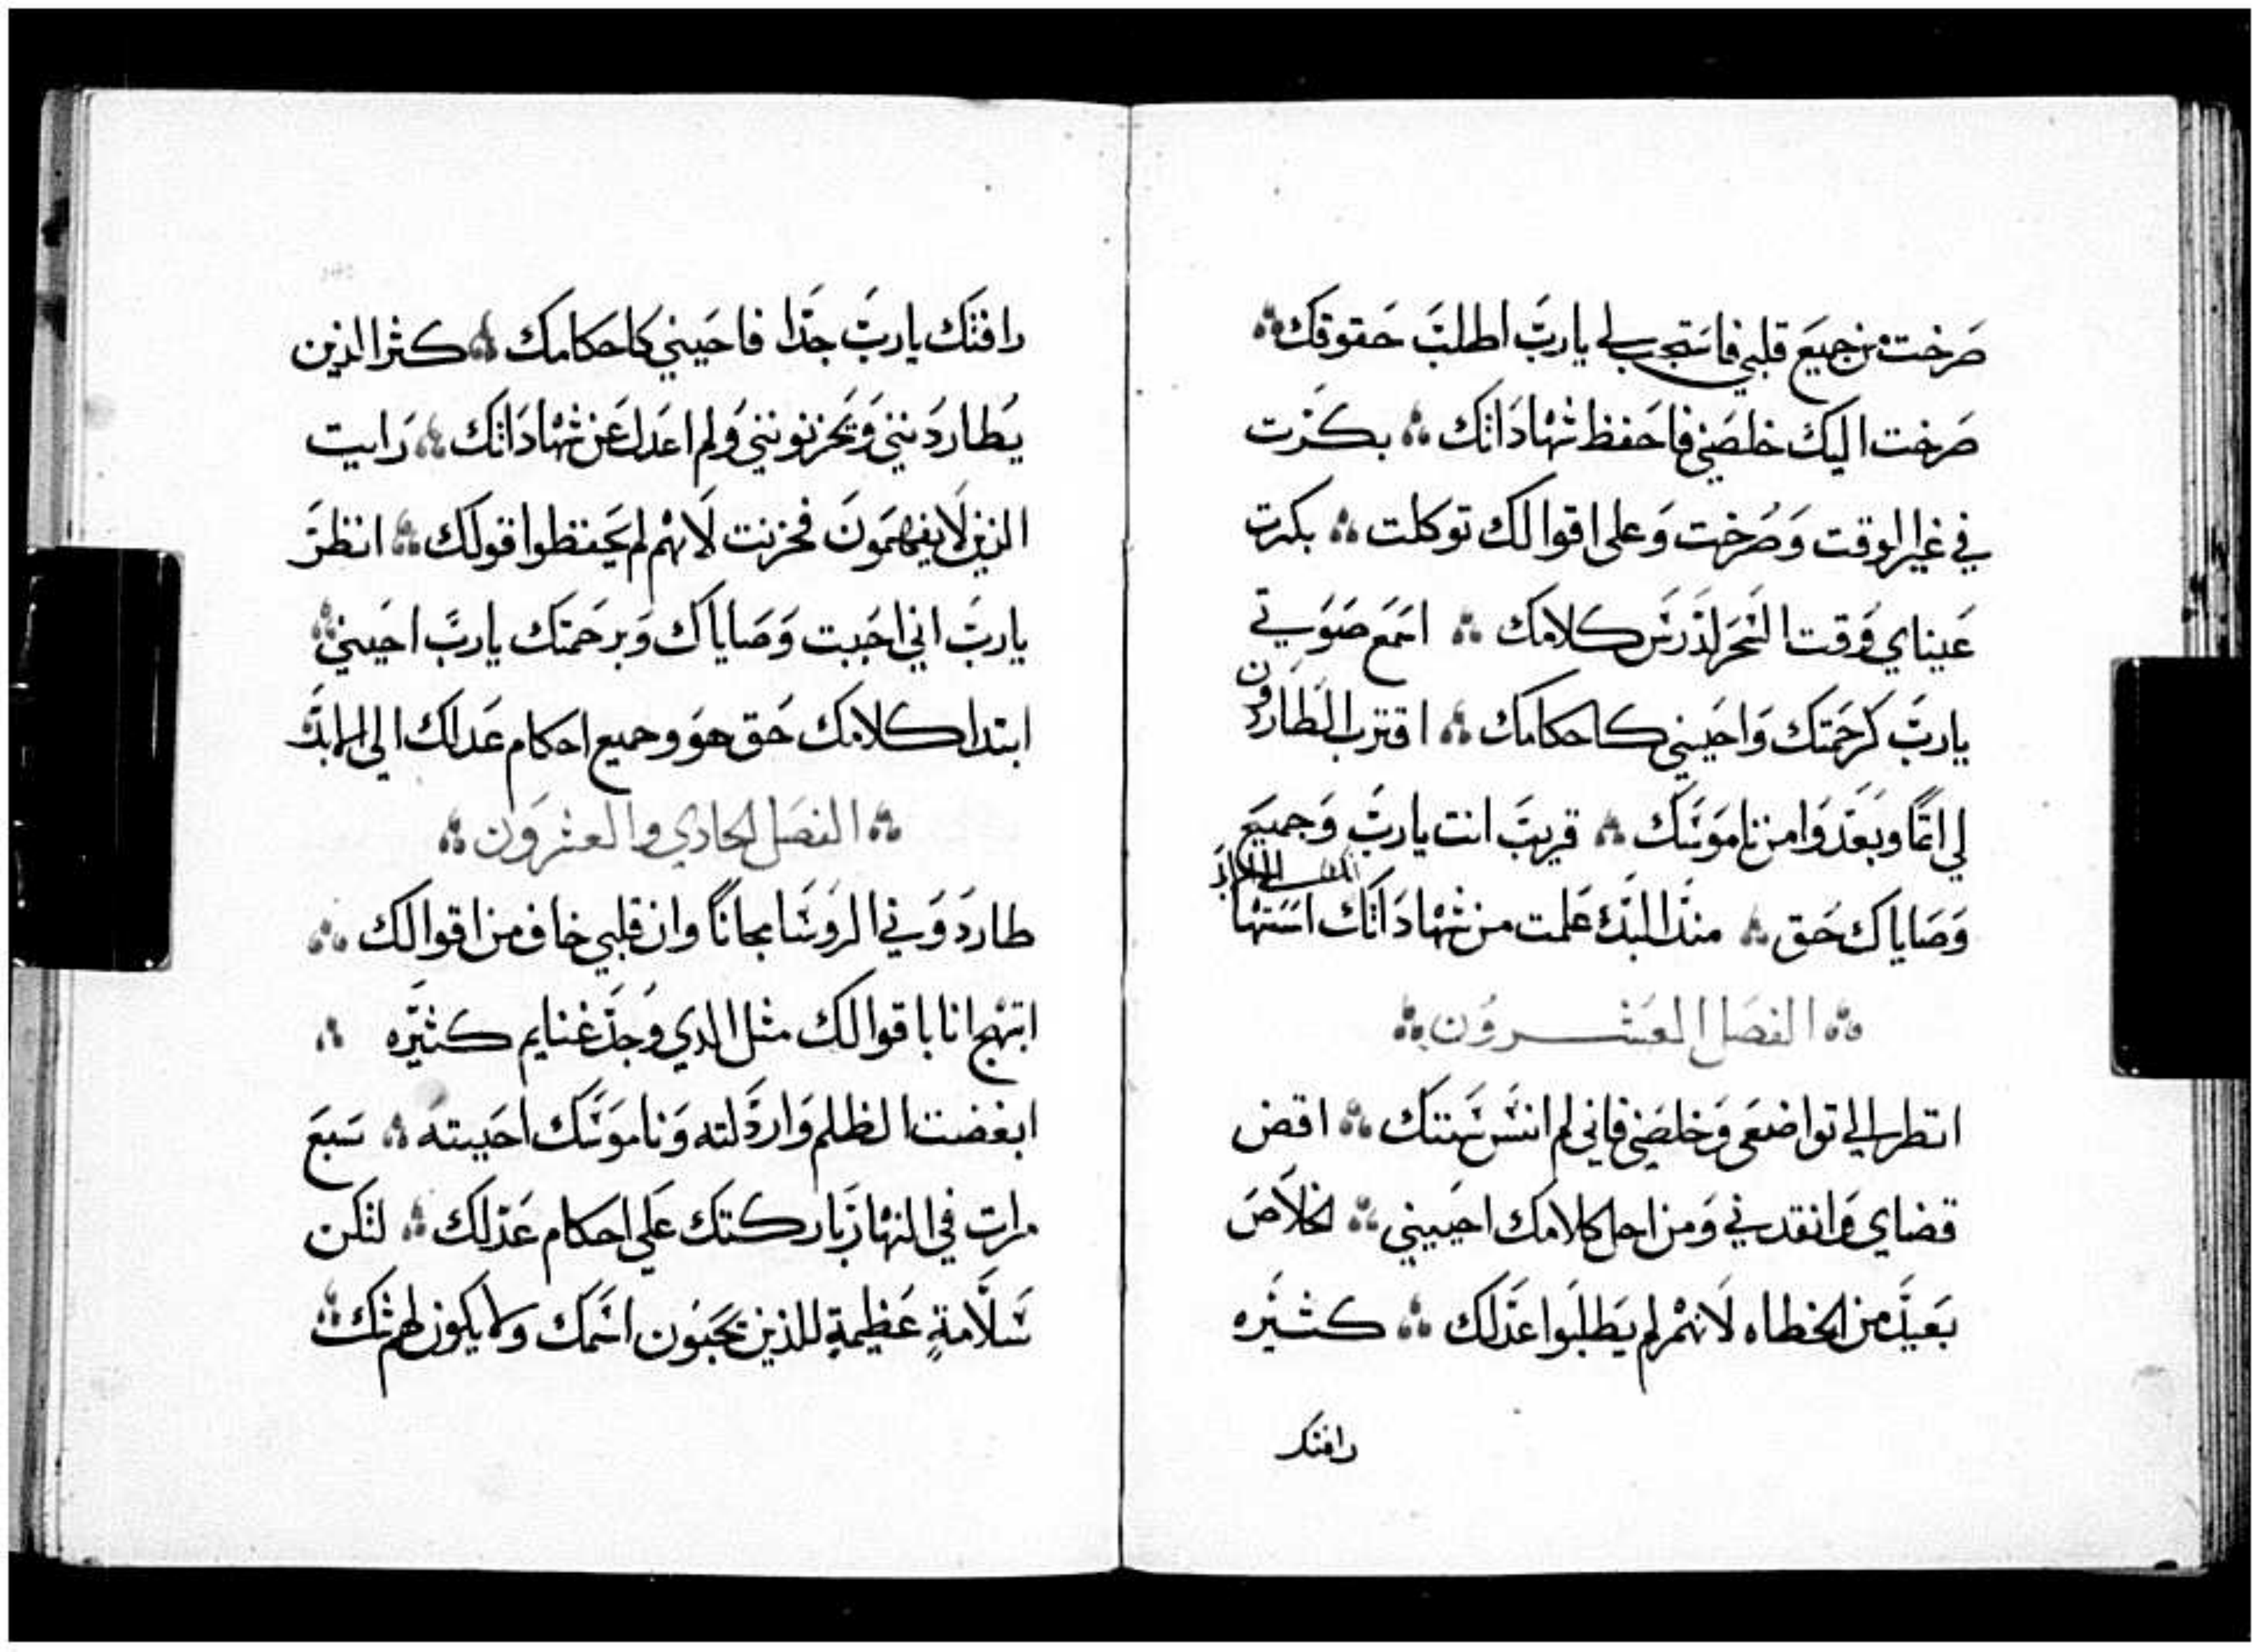 صرخت من جميع قلبي فاستجب لي يارب اطلب حقوقك
صرخت اليك خلصني فاحفظ شهاداتك ؞ بكرت
في غير الوقت وصرخت وعلى اقوالك توكلت ؞ بكرت
عيناي وقت السحر لدرس كلامك ؞ اسمع صوتي
يارب كرحمتك واحييني كاحكامك ؞ اقترب الطاردون
لي اثما وبعدوا من ناموسك ؞ قريب انت يارب وجميع
وصاياك حق ؞ منذ البدء علمت من شهاداتك اسستها
الى الابد
؞ الفصل العشرون ؞
انظر الي تواضعي وخلصني فاني لم انس سنتك ؞ اقض
قضاي وانقدني ومن اجل كلامك احييني ؞ الخلاص
بعيد من الخطاه لانهم لم يطلبوا عدلك ؞ كثيره
رافتك
رافتك يارب جدا فاحييني كاحكامك ؞ كثر الذين
يطاردنني ويحزنونني ولم اعدل عن شهاداتك ؞ رايت
الذين لا يفهمون فحزنت لانهم لم يحفظوا قولك ؞ انظر
يارب اني احببت وصاياك وبرحمتك يارب احييني ؞
ابتدا كلامك حق هو وجميع احكام عدلك الى الابد
؞ الفصل الحادي والعشرون ؞
طاردوني الروسا مجانا وان قلبي خاف من اقوالك ؞
ابتهج انا باقوالك مثل الدي وجد غنايم كثيره ؞
ابغضت الظلم وارذلته وناموسك احببته ؞ سبع
مرات في النهار باركتك على احكام عدلك ؞ لتكن
سلامة عظيمة للذين يحبون اسمك ولا يكون لهم شك ؞